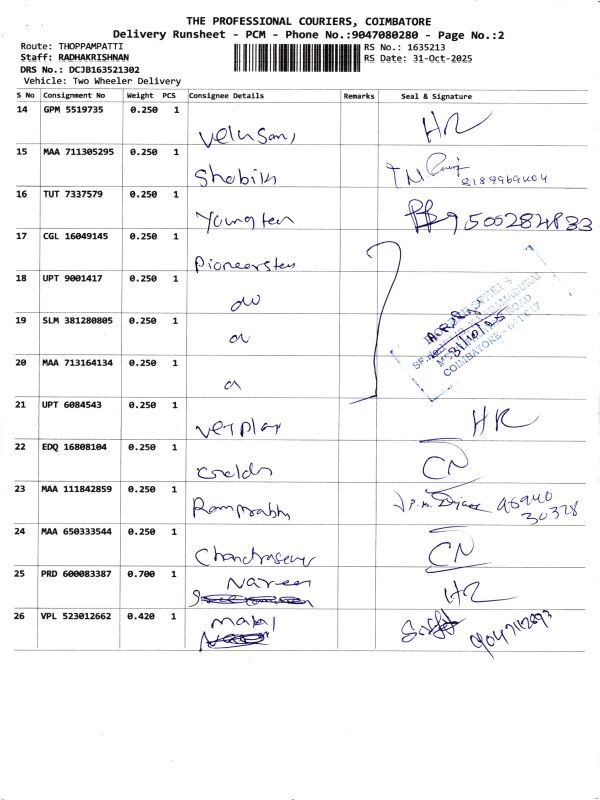 THE PROFESSIONAL COURIERS, COIMBATORE
Delivery Runsheet - PCM - Phone No.:9047080280 - Page No.:2
Route: THOPPAMPATTI
RS No.: 1635213
Staff: RADHAKRISHNAN
RS Date: 31-Oct-2025
DRS No.: DCJB163521302
Vehicle: Two Wheeler Delivery
S No Consignment No Weight PCS Consignee Details Remarks Seal & Signature
14 GPM 5519735 0.250 1 Velusamy HR
15 MAA 711305295 0.250 1 Shobika
16 TUT 7337579 0.250 1 Youngten 9500284833
17 CGL 16049145 0.250 1 Pioneersten
18 UPT 9001417 0.250 1
19 SLM 381280805 0.250 1
20 MAA 713164134 0.250 1
COIMBATORE
21 UPT 6084543 0.250 1 HR
22 EDQ 16808104 0.250 1 CN
23 MAA 111842859 0.250 1 Ramprabhu 98940
30378
24 MAA 650333544 0.250 1 CN
25 PRD 600083387 0.700 1 Naveen HR
26 VPL 523012662 0.420 1